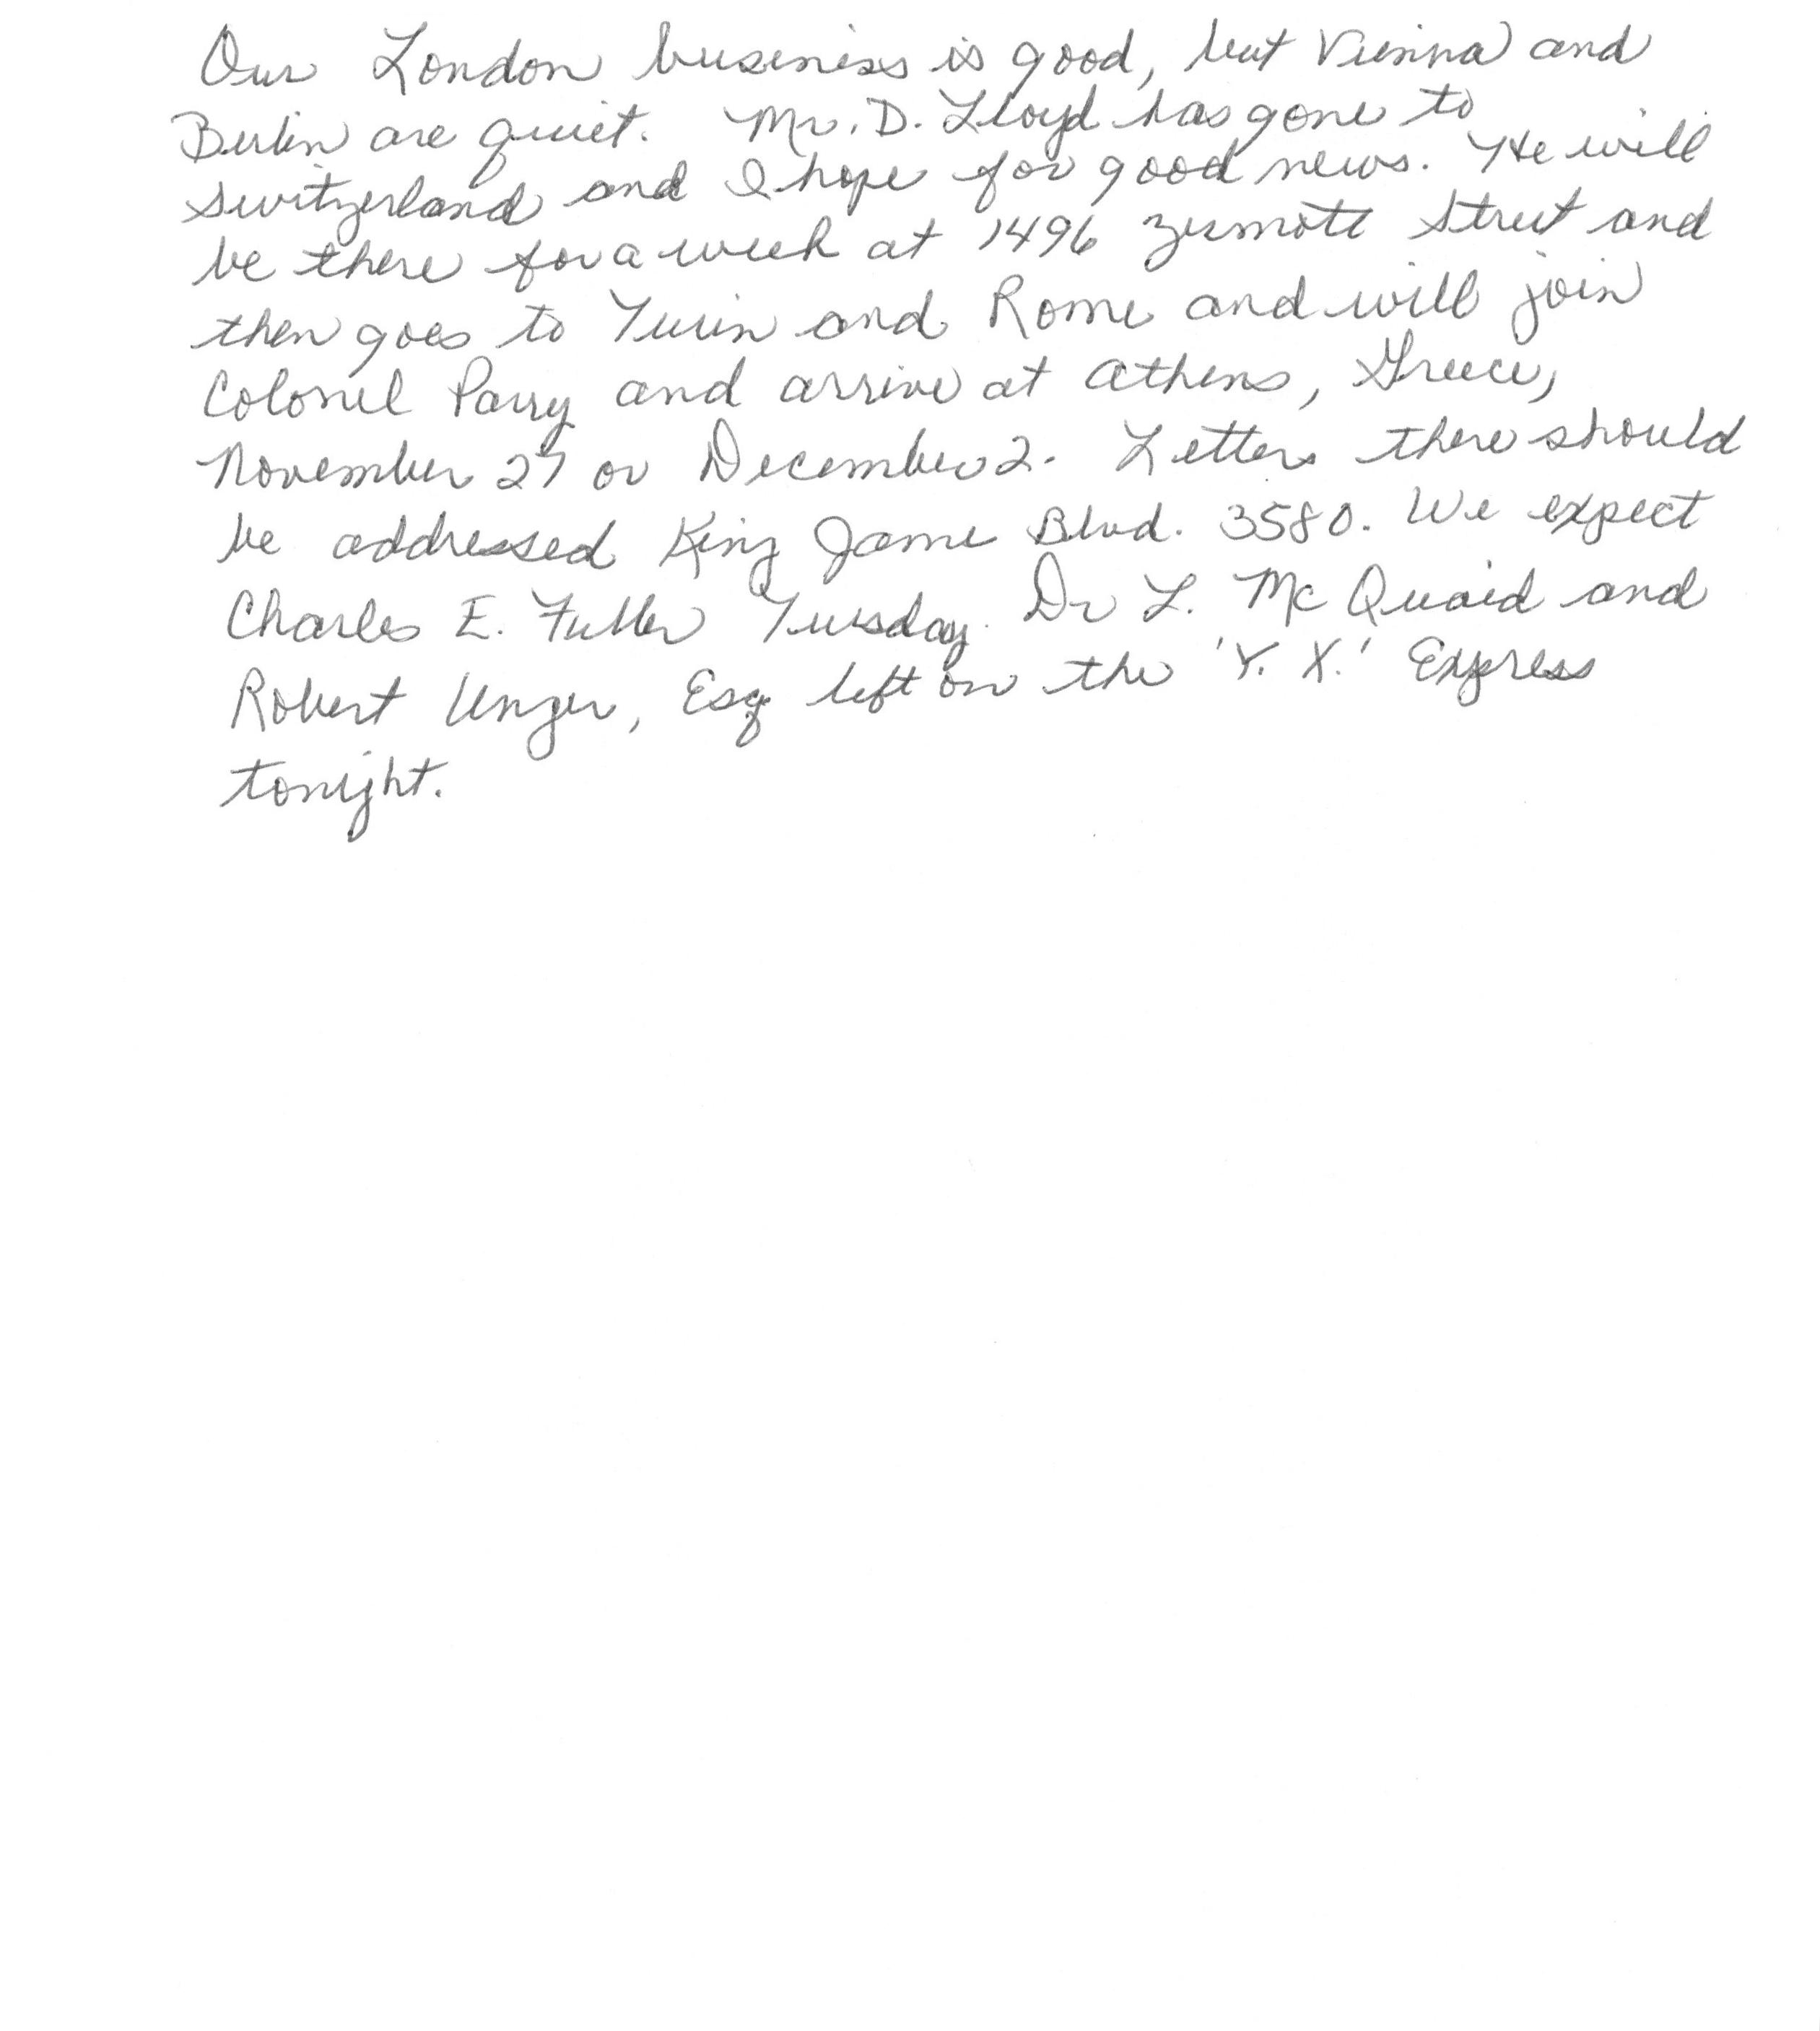 Our London business is good, but Vienna and
Berlin are quiet. Mr. D. Lloyd has gone to
Switzerland and I hope for good news. He will
be there for a week at 1496 Zermott Street and
then goes to Turin and Rome and will join
Colonel Parry and arrive at Athens, Greece,
November 27 or December 2. Letters there should
be addressed King Jame Blvd. 3580. We expect
Charles E. Fuller Tuesday. Dr L. McQuaid and
Robert Unger, Esq left on the 'Y. X.' Express
tonight.